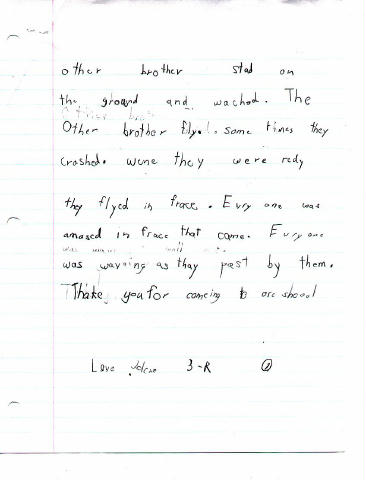 other brother stad on
the ground and wached. The
Other brother flyd. some times they
crashed. wene they were redy
they flyed in frace. Evry one was
amased in frace that came. Evryone
was wayving as thay past by them.
Thake you for comeing to are shool
Love 3-R